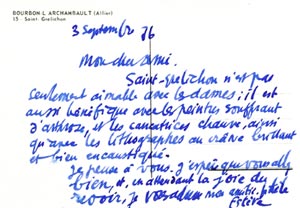 BOURBON L'ARCHAMBAULT (Allier)
15 - Saint-Grelichon
3 septembre 76
Mon cher ami.
Saint-Grelichon n'est pas
seulement aimable avec les dames; il est
aussi bénéfique avec les peintres souffrant
d'arthrose, et les cantatrices chauves, ainsi
qu'avec les lithographes au crâne brillant
et bien encaustiqué.
Je pense à vous, j'espère que vous allez
bien, et, en attendant la joie de
revoir, je vous mon amitié